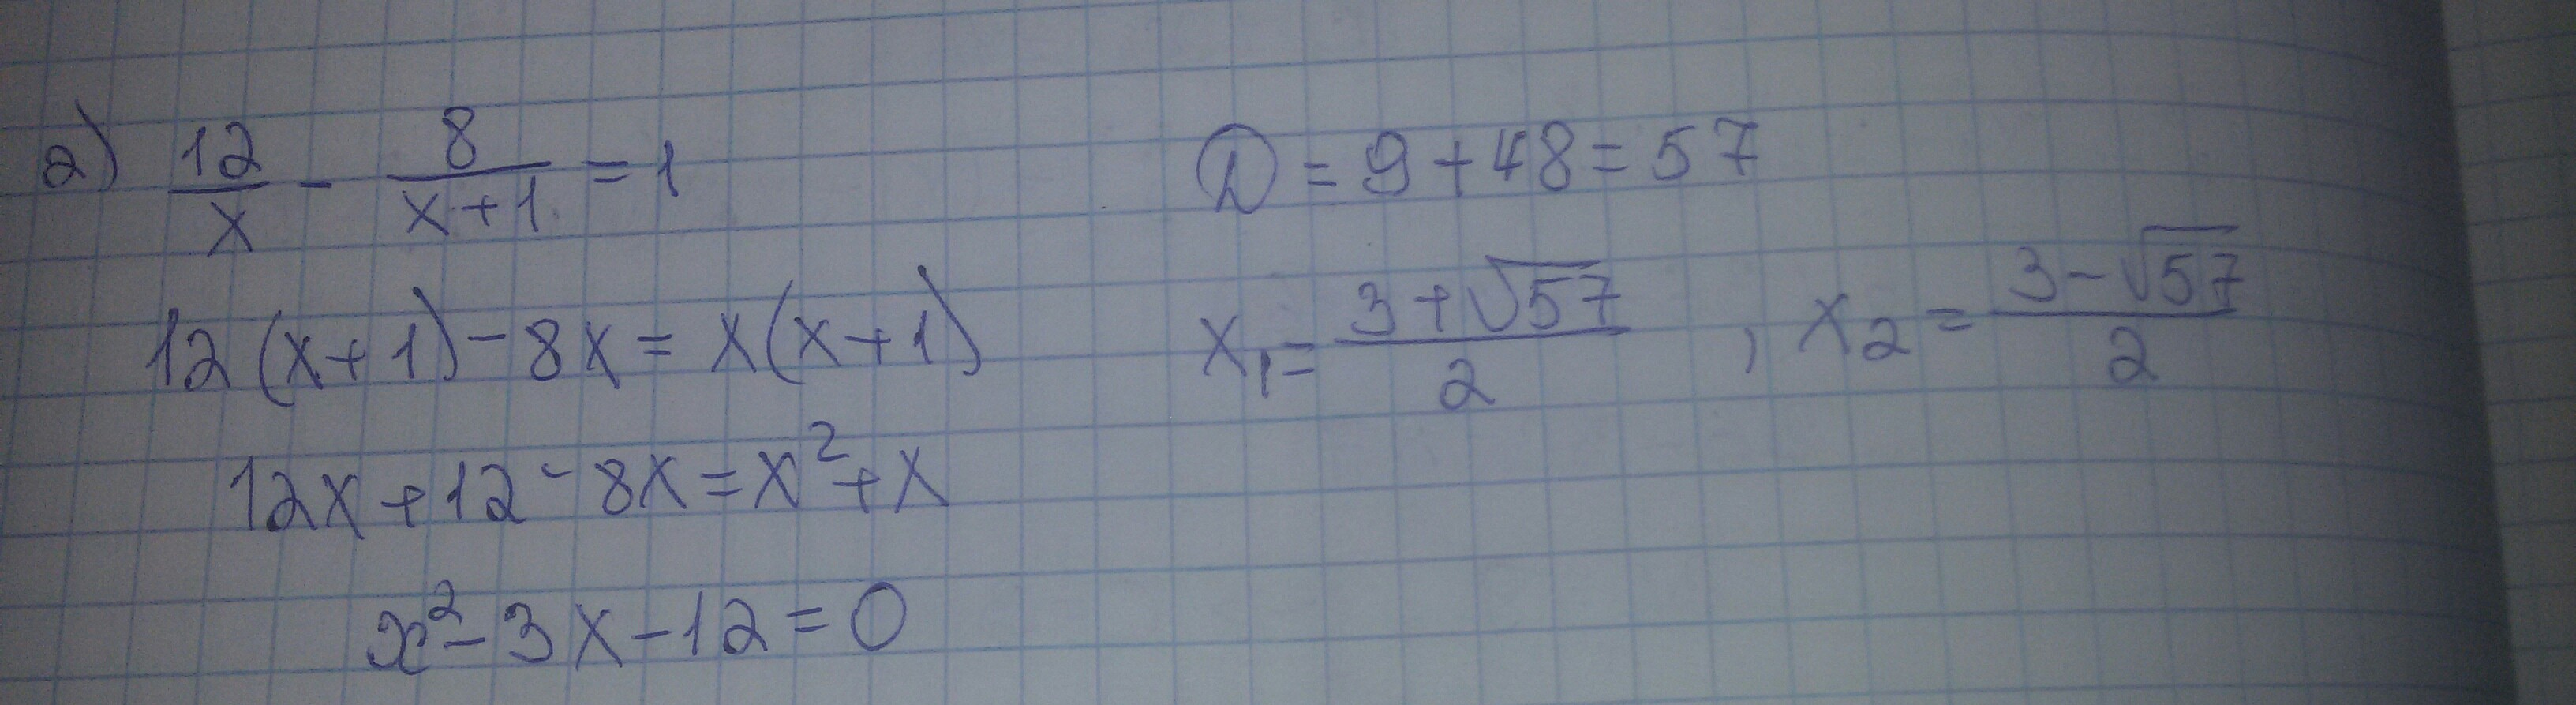 a) 12/x - 8/(x+1) = 1
12(x+1)-8x = x(x+1)
12x+12-8x=x²+x
x²-3x-12=0
D = 9+48=57
x₁= (3+√57)/2 , x₂= (3-√57)/2